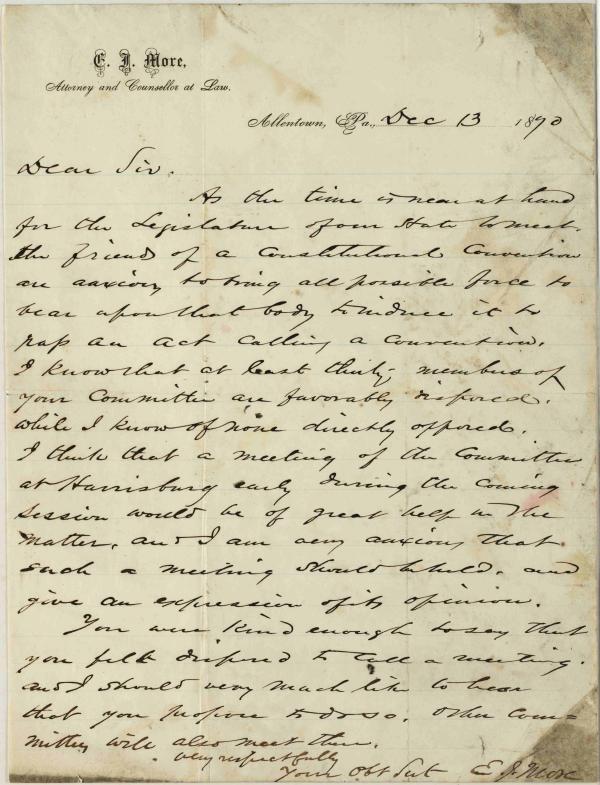 E. J. More,
Attorney and Counsellor at Law.
Allentown, Pa., Dec 13 1890
Dear Sir.
As the time is near at hand
for the Legislature of our State to meet.
the friend of a Constitutional Convention
are anxious to bring all possible force to
bear upon that body to induce it to
pass an act calling a convention.
I know that at least thirty members of
your Committee are favorably disposed.
while I know of none directly opposed.
I think that a meeting of the Committee
at Harrisburg early during the coming
session would be of great help in the
matter, and I am very anxious that
such a meeting should be held. and
give an expression of its opinion.
You were kind enough to say that
you felt disposed to call a meeting.
and I should very much like to hear
that you propose to do so. Other Com=
mittees will also meet then.
very respectfully
Your Obt Svt E J. More